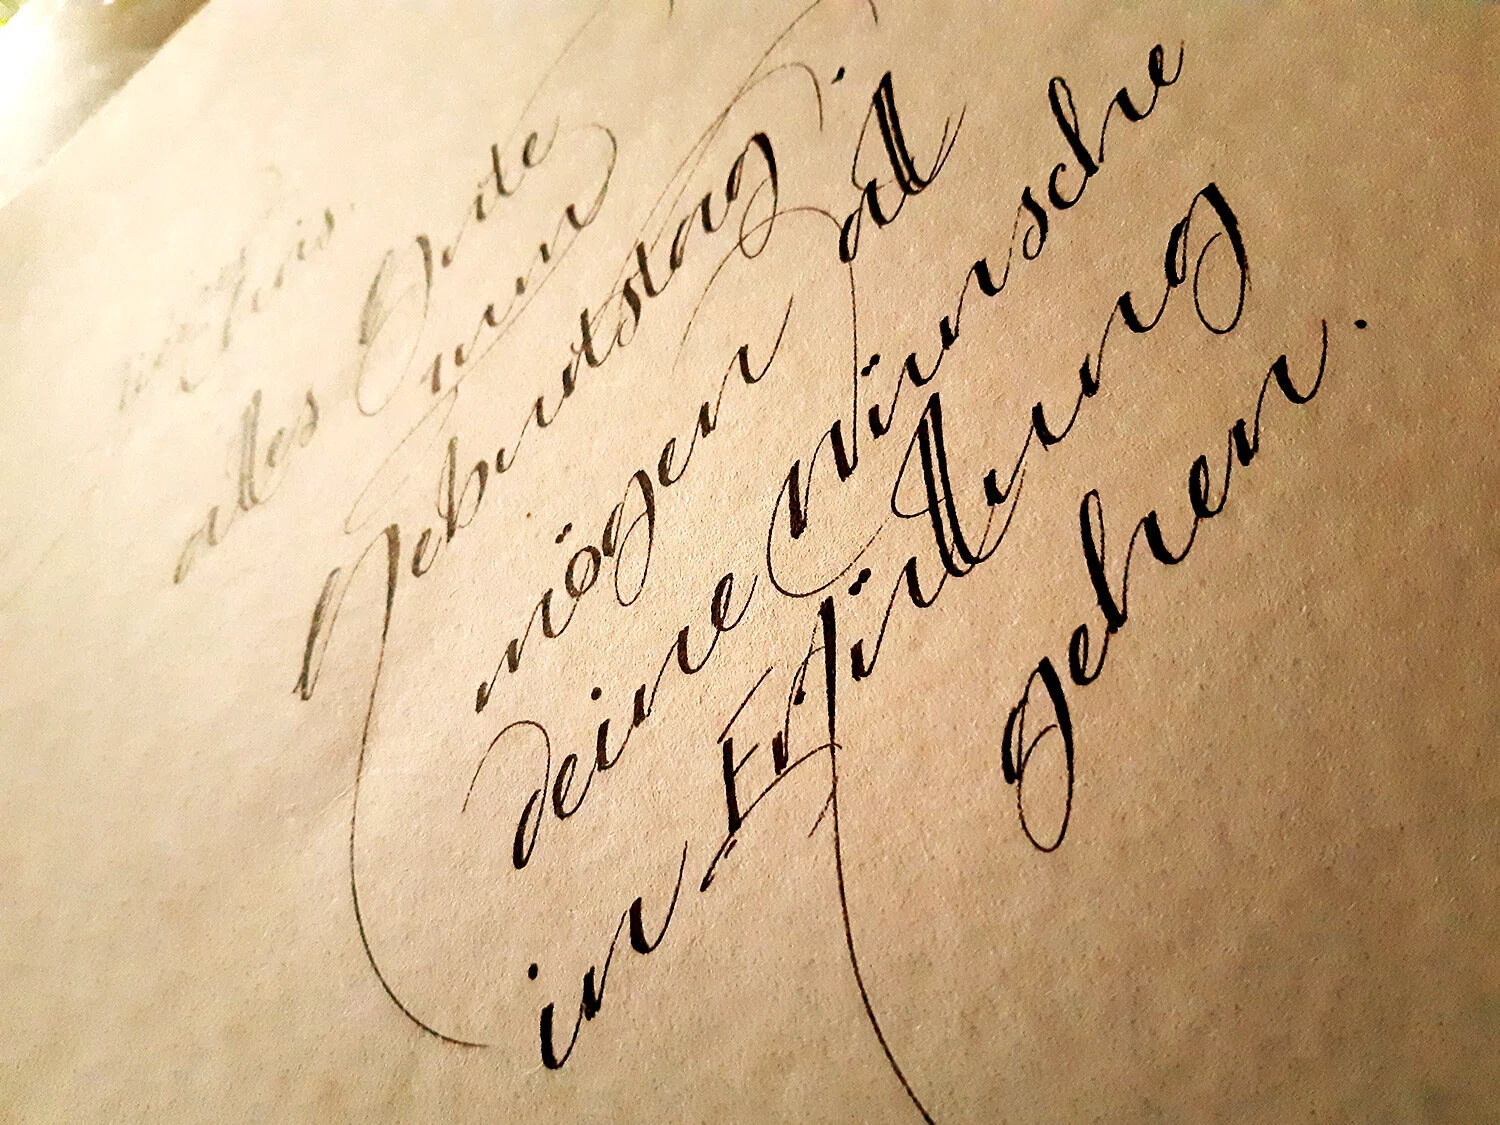 alles Gute
zum
Geburtstag
mögen all
deine Wünsche
in Erfüllung
gehen.